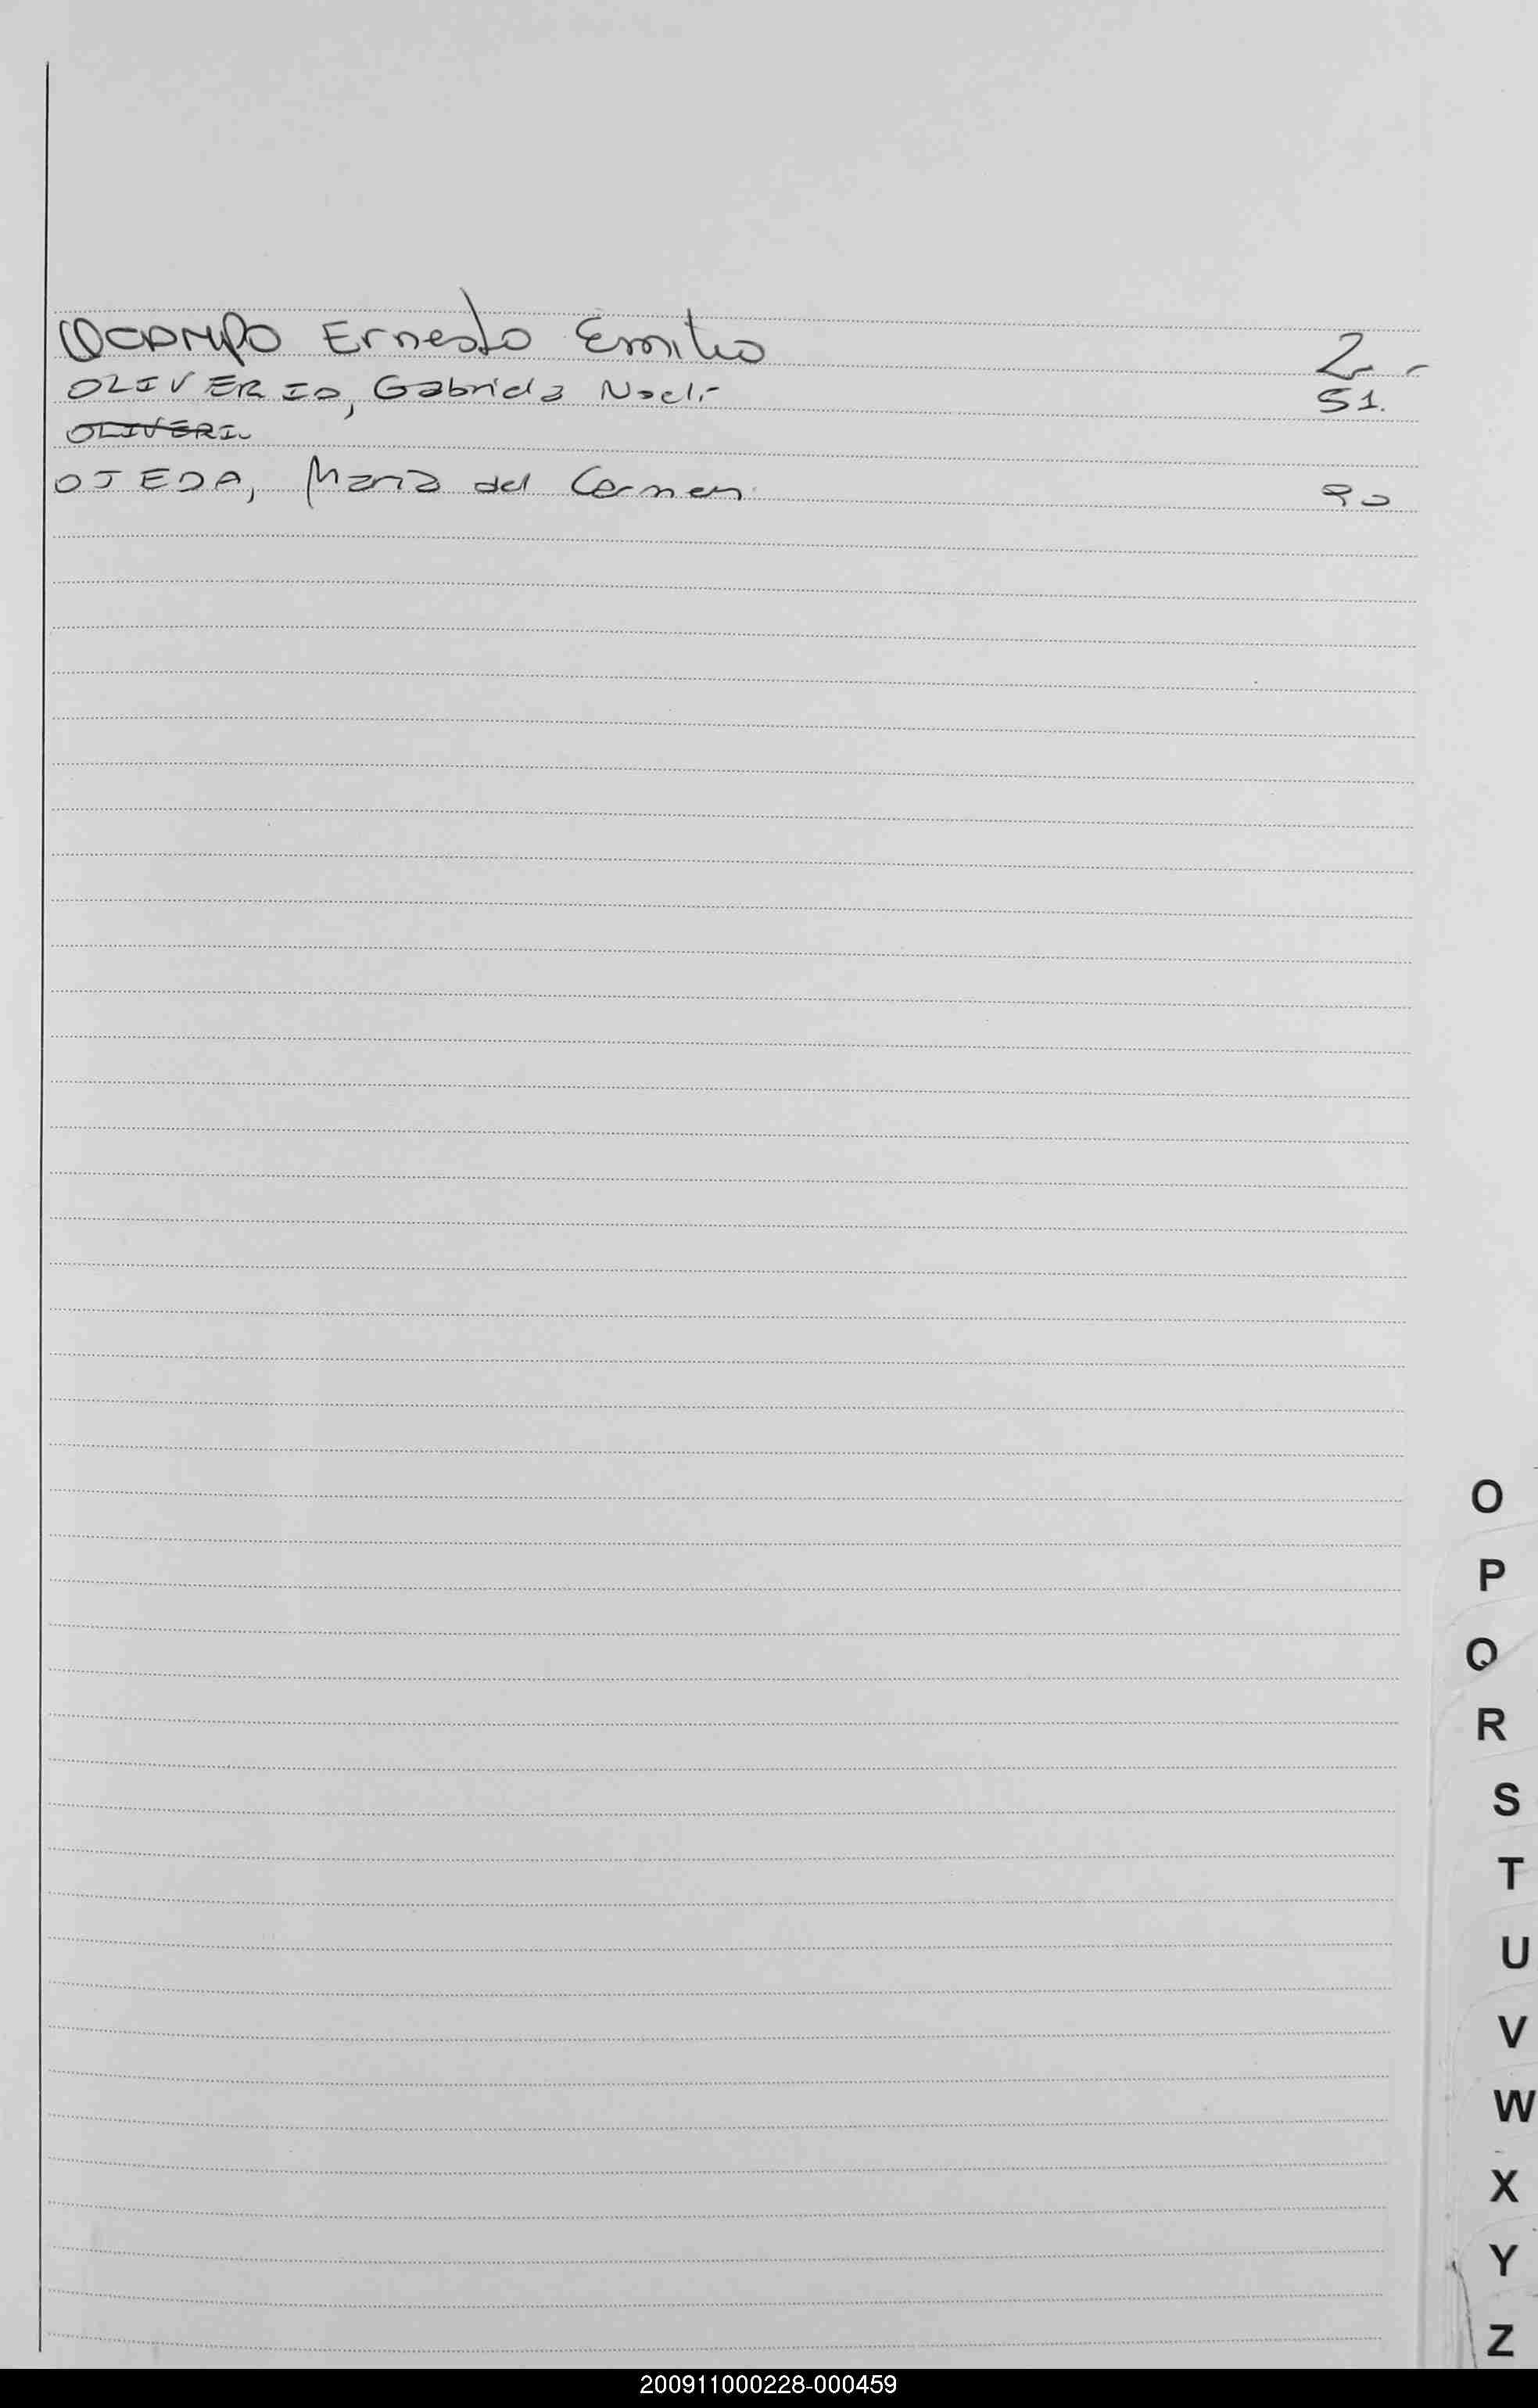 OCAMPO Ernesto Emilio 2-
OLIVERIO, Gabriela Noeli 51.
OLIVERI
OJEDA, Maria del Carmen. 90
O
P
Q
R
S
T
U
V
W
X
Y
Z
200911000228-000459